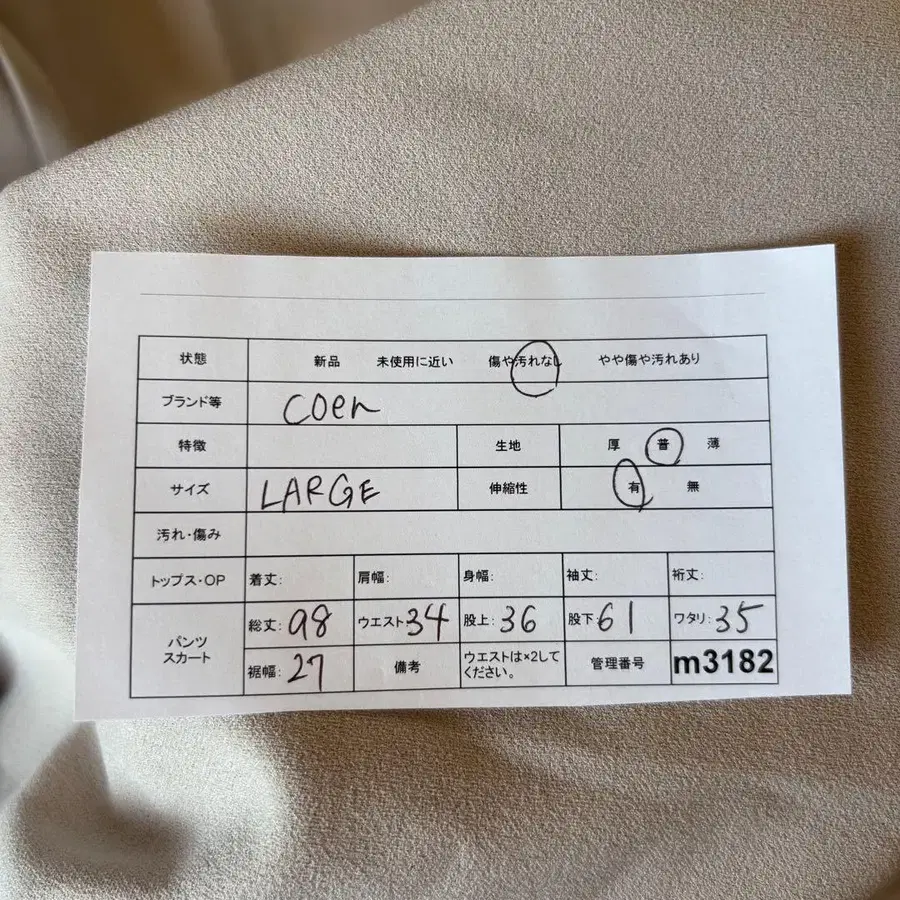 状態 新品 未使用に近い 傷や汚れなし やや傷や汚れあり
ブランド等 coen
特徴 生地 厚 普 薄
サイズ LARGE 伸縮性 有 無
汚れ・傷み
トップス・OP 着丈: 肩幅: 身幅: 袖丈: 裄丈:
パンツ スカート 総丈: 98 ウエスト 34 股上: 36 股下 61 ワタリ: 35
裾幅: 27 備考 ウエストは×2して 管理番号 m3182
ください。